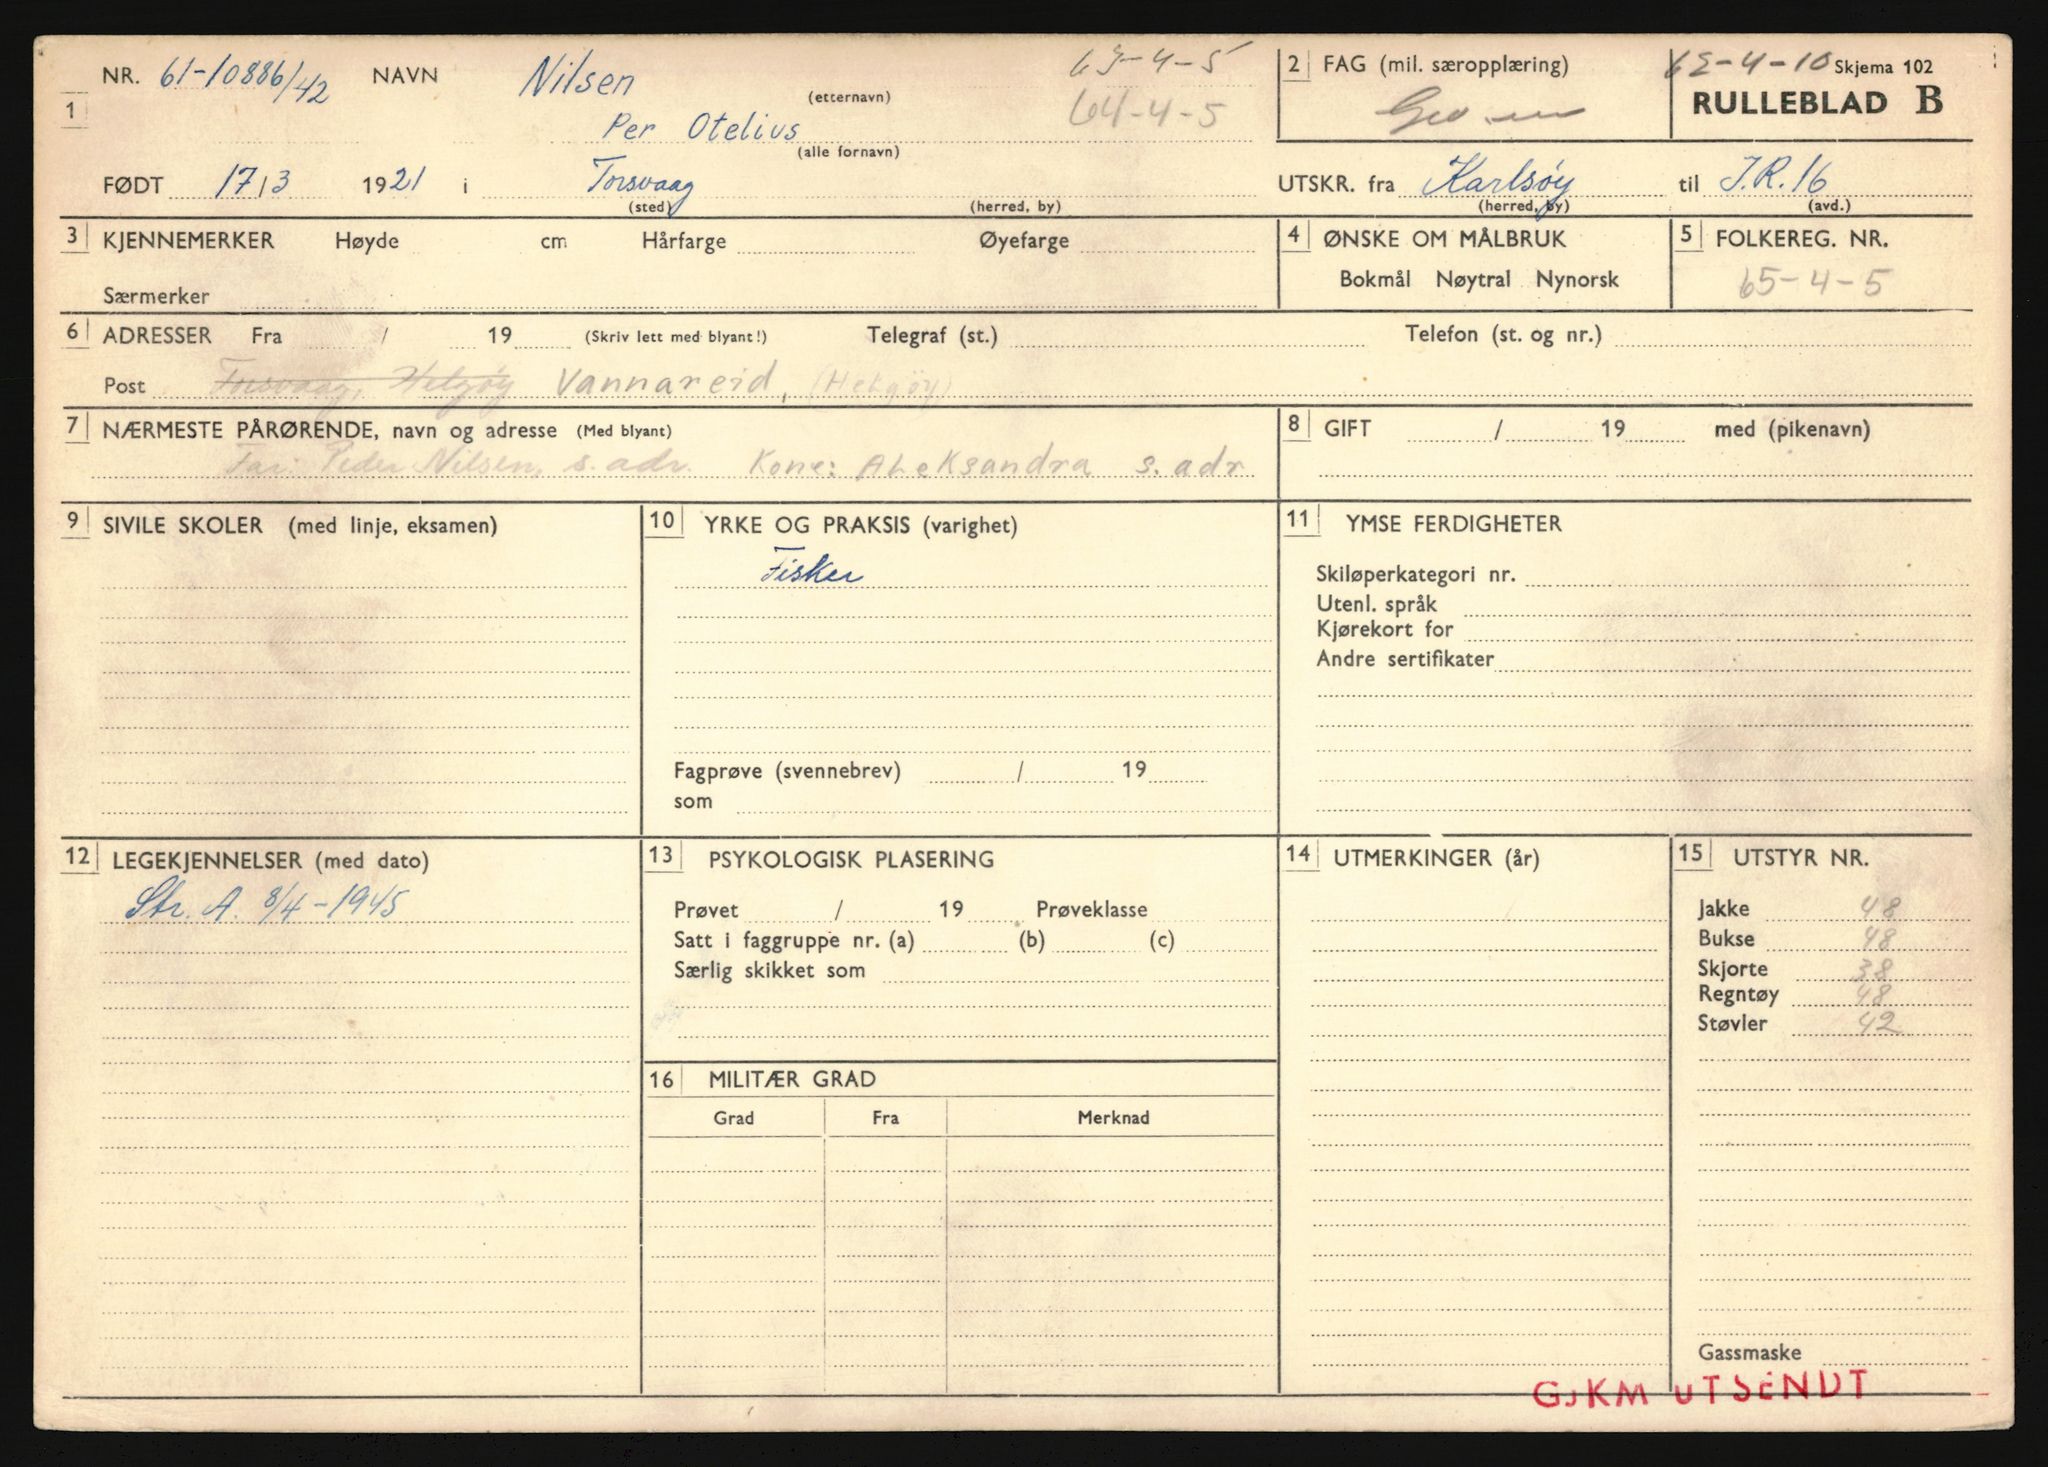 1 NR. 61-10886/42 NAVN Nilsen (etternavn) 63-4-5
Per Otelius (alle fornavn) 64-4-5
FØDT 17/3 1921 i Torsvaag (sted) (herred, by)
2 FAG (mil. særopplæring) 62-4-10 Skjema 102
RULLEBLAD B
UTSKR. fra Karlsøy (herred, by) til J.R. 16 (avd.)
3 KJENNEMERKER Høyde cm Hårfarge Øyefarge
Særmerker
4 ØNSKE OM MÅLBRUK
Bokmål Nøytral Nynorsk
5 FOLKEREG. NR.
65-4-5
6 ADRESSER Fra / 19 (Skriv lett med blyant!) Telegraf (st.) Telefon (st. og nr.)
Post Torsvaag, Helgøy Vannareid, (Helgøy)
7 NÆRMESTE PÅRØRENDE, navn og adresse (Med blyant)
Far: Peder Nilsen, s. adr. Kone: Aleksandra s. adr
8 GIFT / 19 med (pikenavn)
9 SIVILE SKOLER (med linje, eksamen)
10 YRKE OG PRAKSIS (varighet)
Fisker
Fagprøve (svennebrev) / 19
som
11 YMSE FERDIGHETER
Skiløperkategori nr.
Utenl. språk
Kjørekort for
Andre sertifikater
12 LEGEKJENNELSER (med dato)
Str. A. 8/4-1945
13 PSYKOLOGISK PLASERING
Prøvet / 19 Prøveklasse
Satt i faggruppe nr. (a) (b) (c)
Særlig skikket som
14 UTMERKINGER (år)
15 UTSTYR NR.
Jakke 48
Bukse 48
Skjorte 38
Regntøy 48
Støvler 42
Gassmaske
16 MILITÆR GRAD
Grad Fra Merknad
GJKM UTSENDT